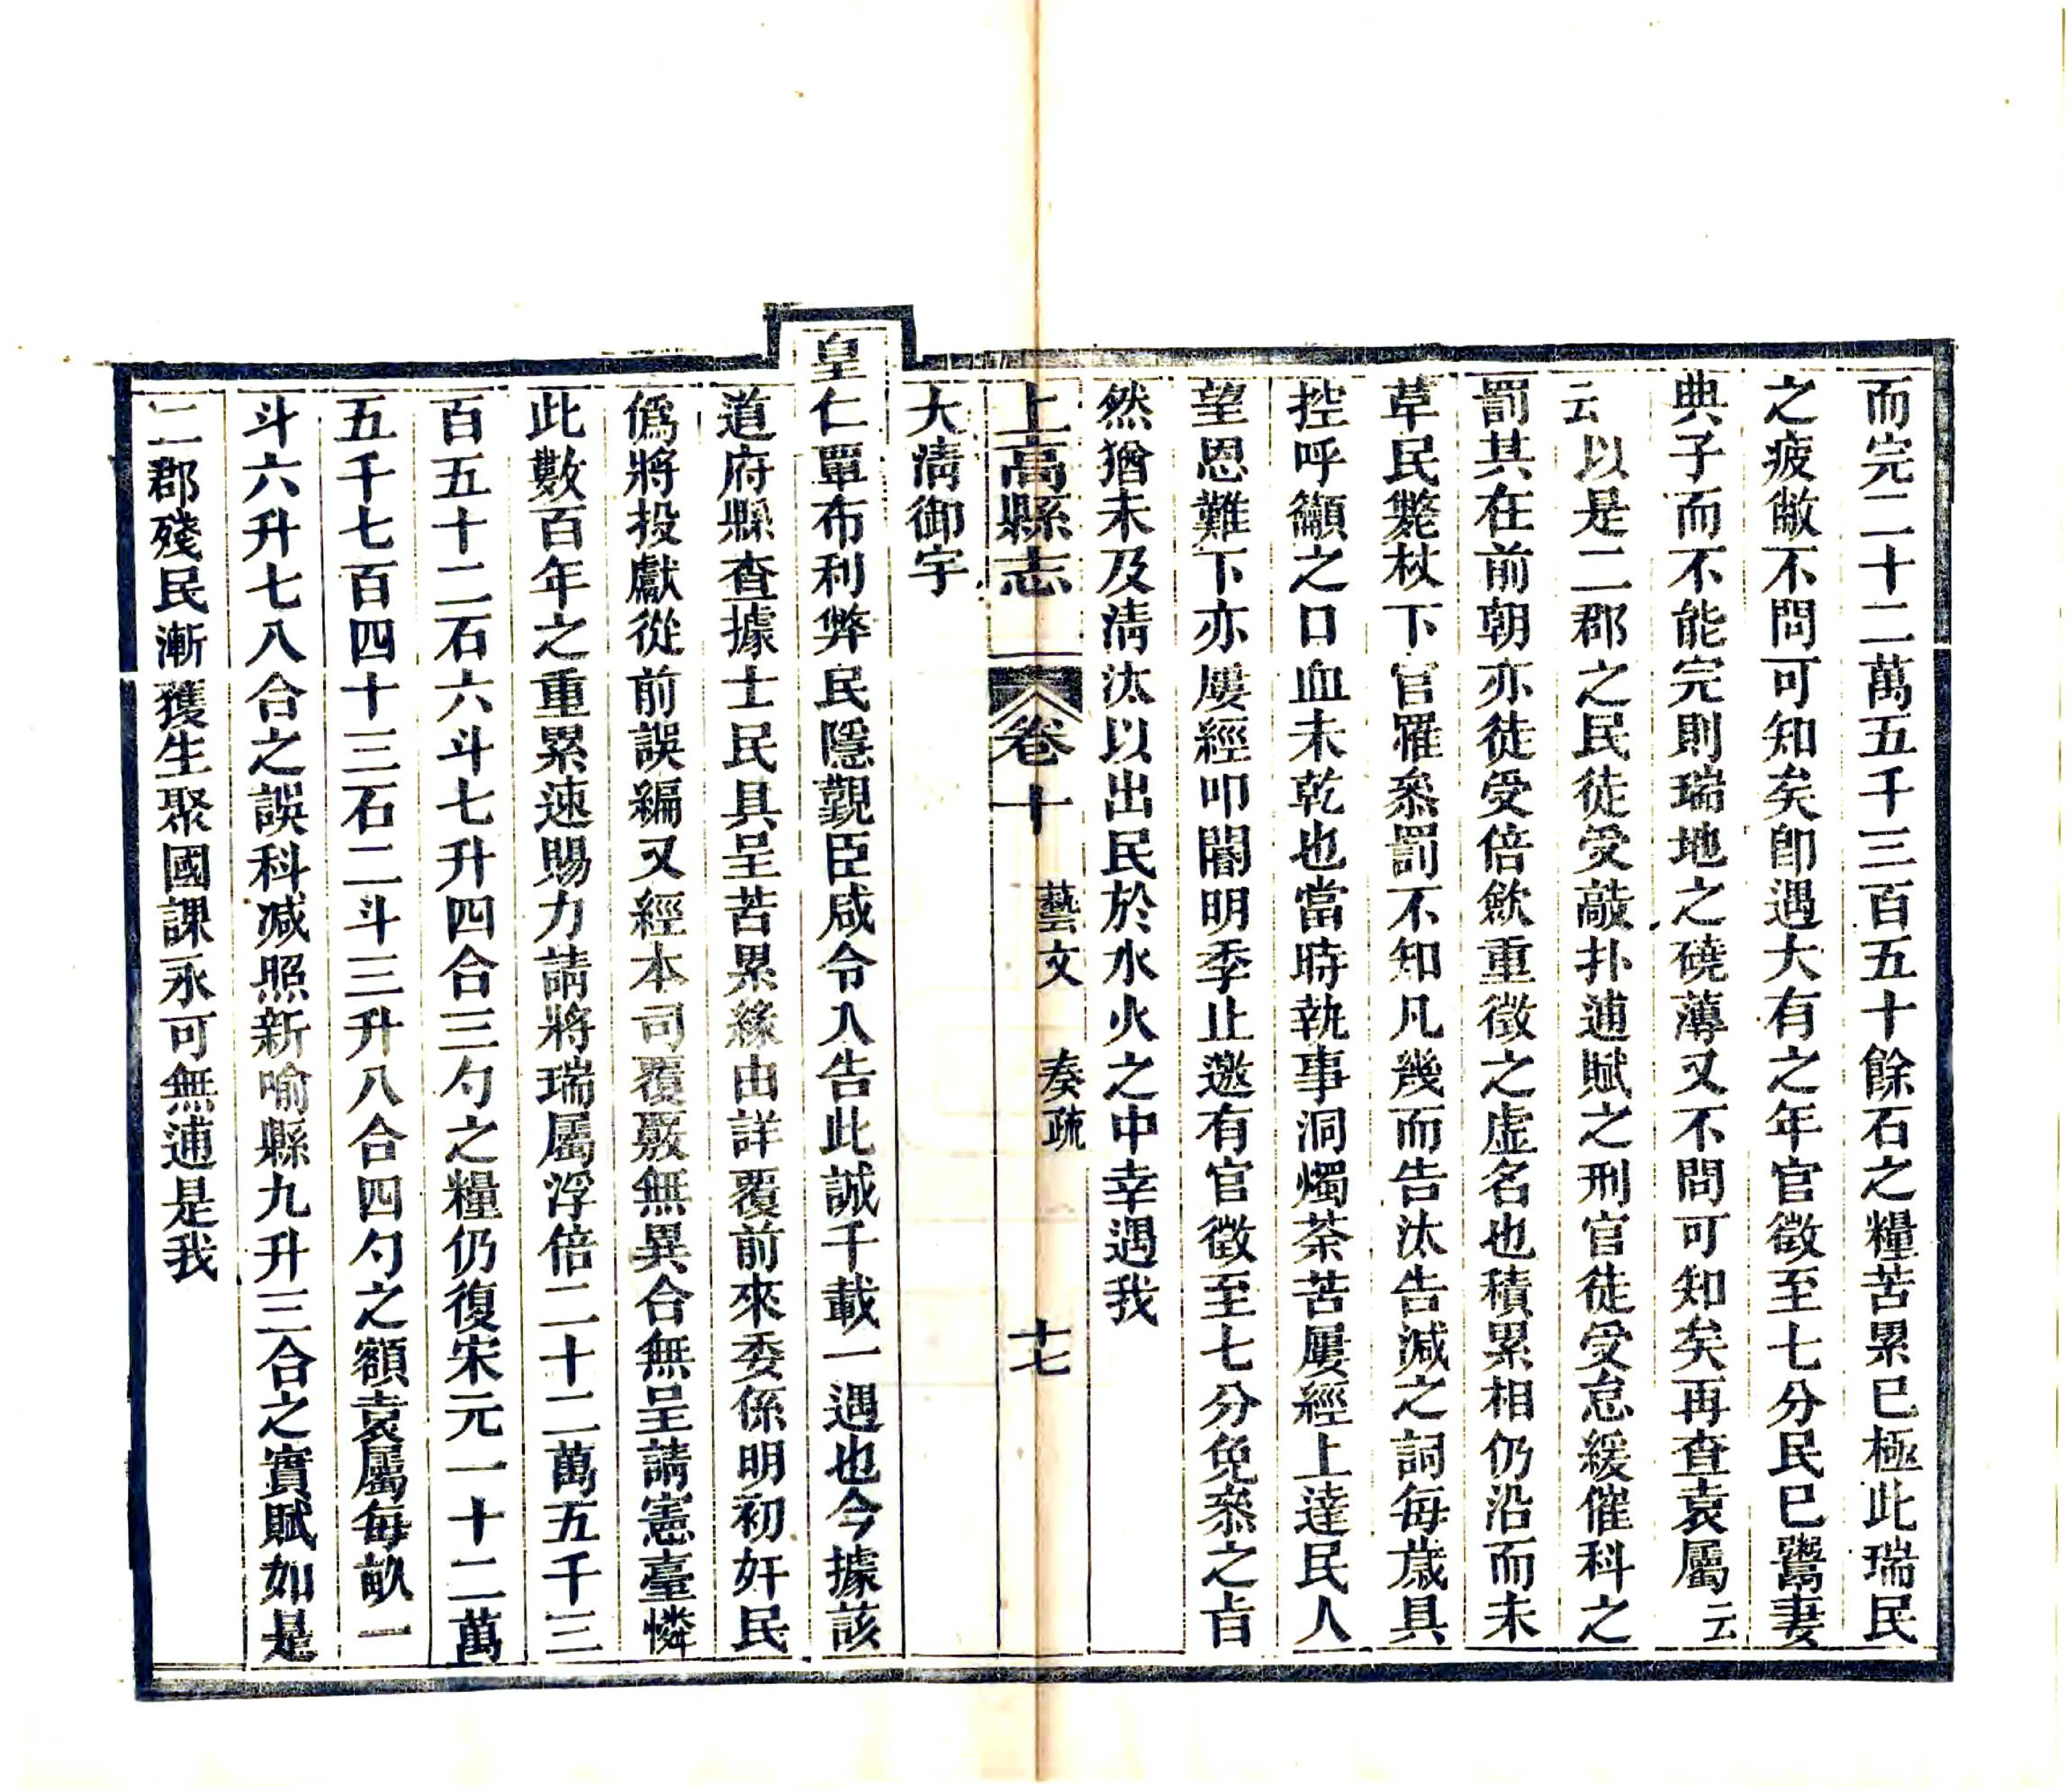 而完二十二萬五千三百五十餘石之糧苦累已極此瑞民
之疲敝不問可知矣卽遇大有之年官徵至七分民已鬻妻
典子而不能完則瑞地之磽薄又不問可知矣再查袁屬云
云以是二郡之民徒受敲扑逋賦之刑官徒受怠緩催科之
罰其在前朝亦徒受倍歛重徵之虛名也積累相仍沿而未
草民斃杖下官罹叅罰不知凡幾而告汰告減之詞每歲具
控呼籲之口血未乾也當時執事洞燭荼苦屢經上達民人
望恩難下亦屢經叩閽明季止邀有官徵至七分免叅之㫖
然猶未及淸汰以出民於水火之中幸遇我
上高縣志 卷十 藝文 奏疏 十七
大淸御宇
皇仁覃布利弊民隱覲臣咸令入告此誠千載一遇也今據該
道府縣查據士民具呈苦累緣由詳覆前來委係明初奸民
僞將投獻從前誤編又經本司覆覈無異合無呈請憲臺憐
此數百年之重累速賜力請將瑞屬浮倍二十二萬五千三
百五十二石六斗七升四合三勺之糧仍復宋元一十二萬
五千七百四十三石二斗三升八合四勺之額袁屬每畝一
斗六升七八合之誤科減照新喻縣九升三合之實賦如是
二郡殘民漸獲生聚國課永可無逋是我